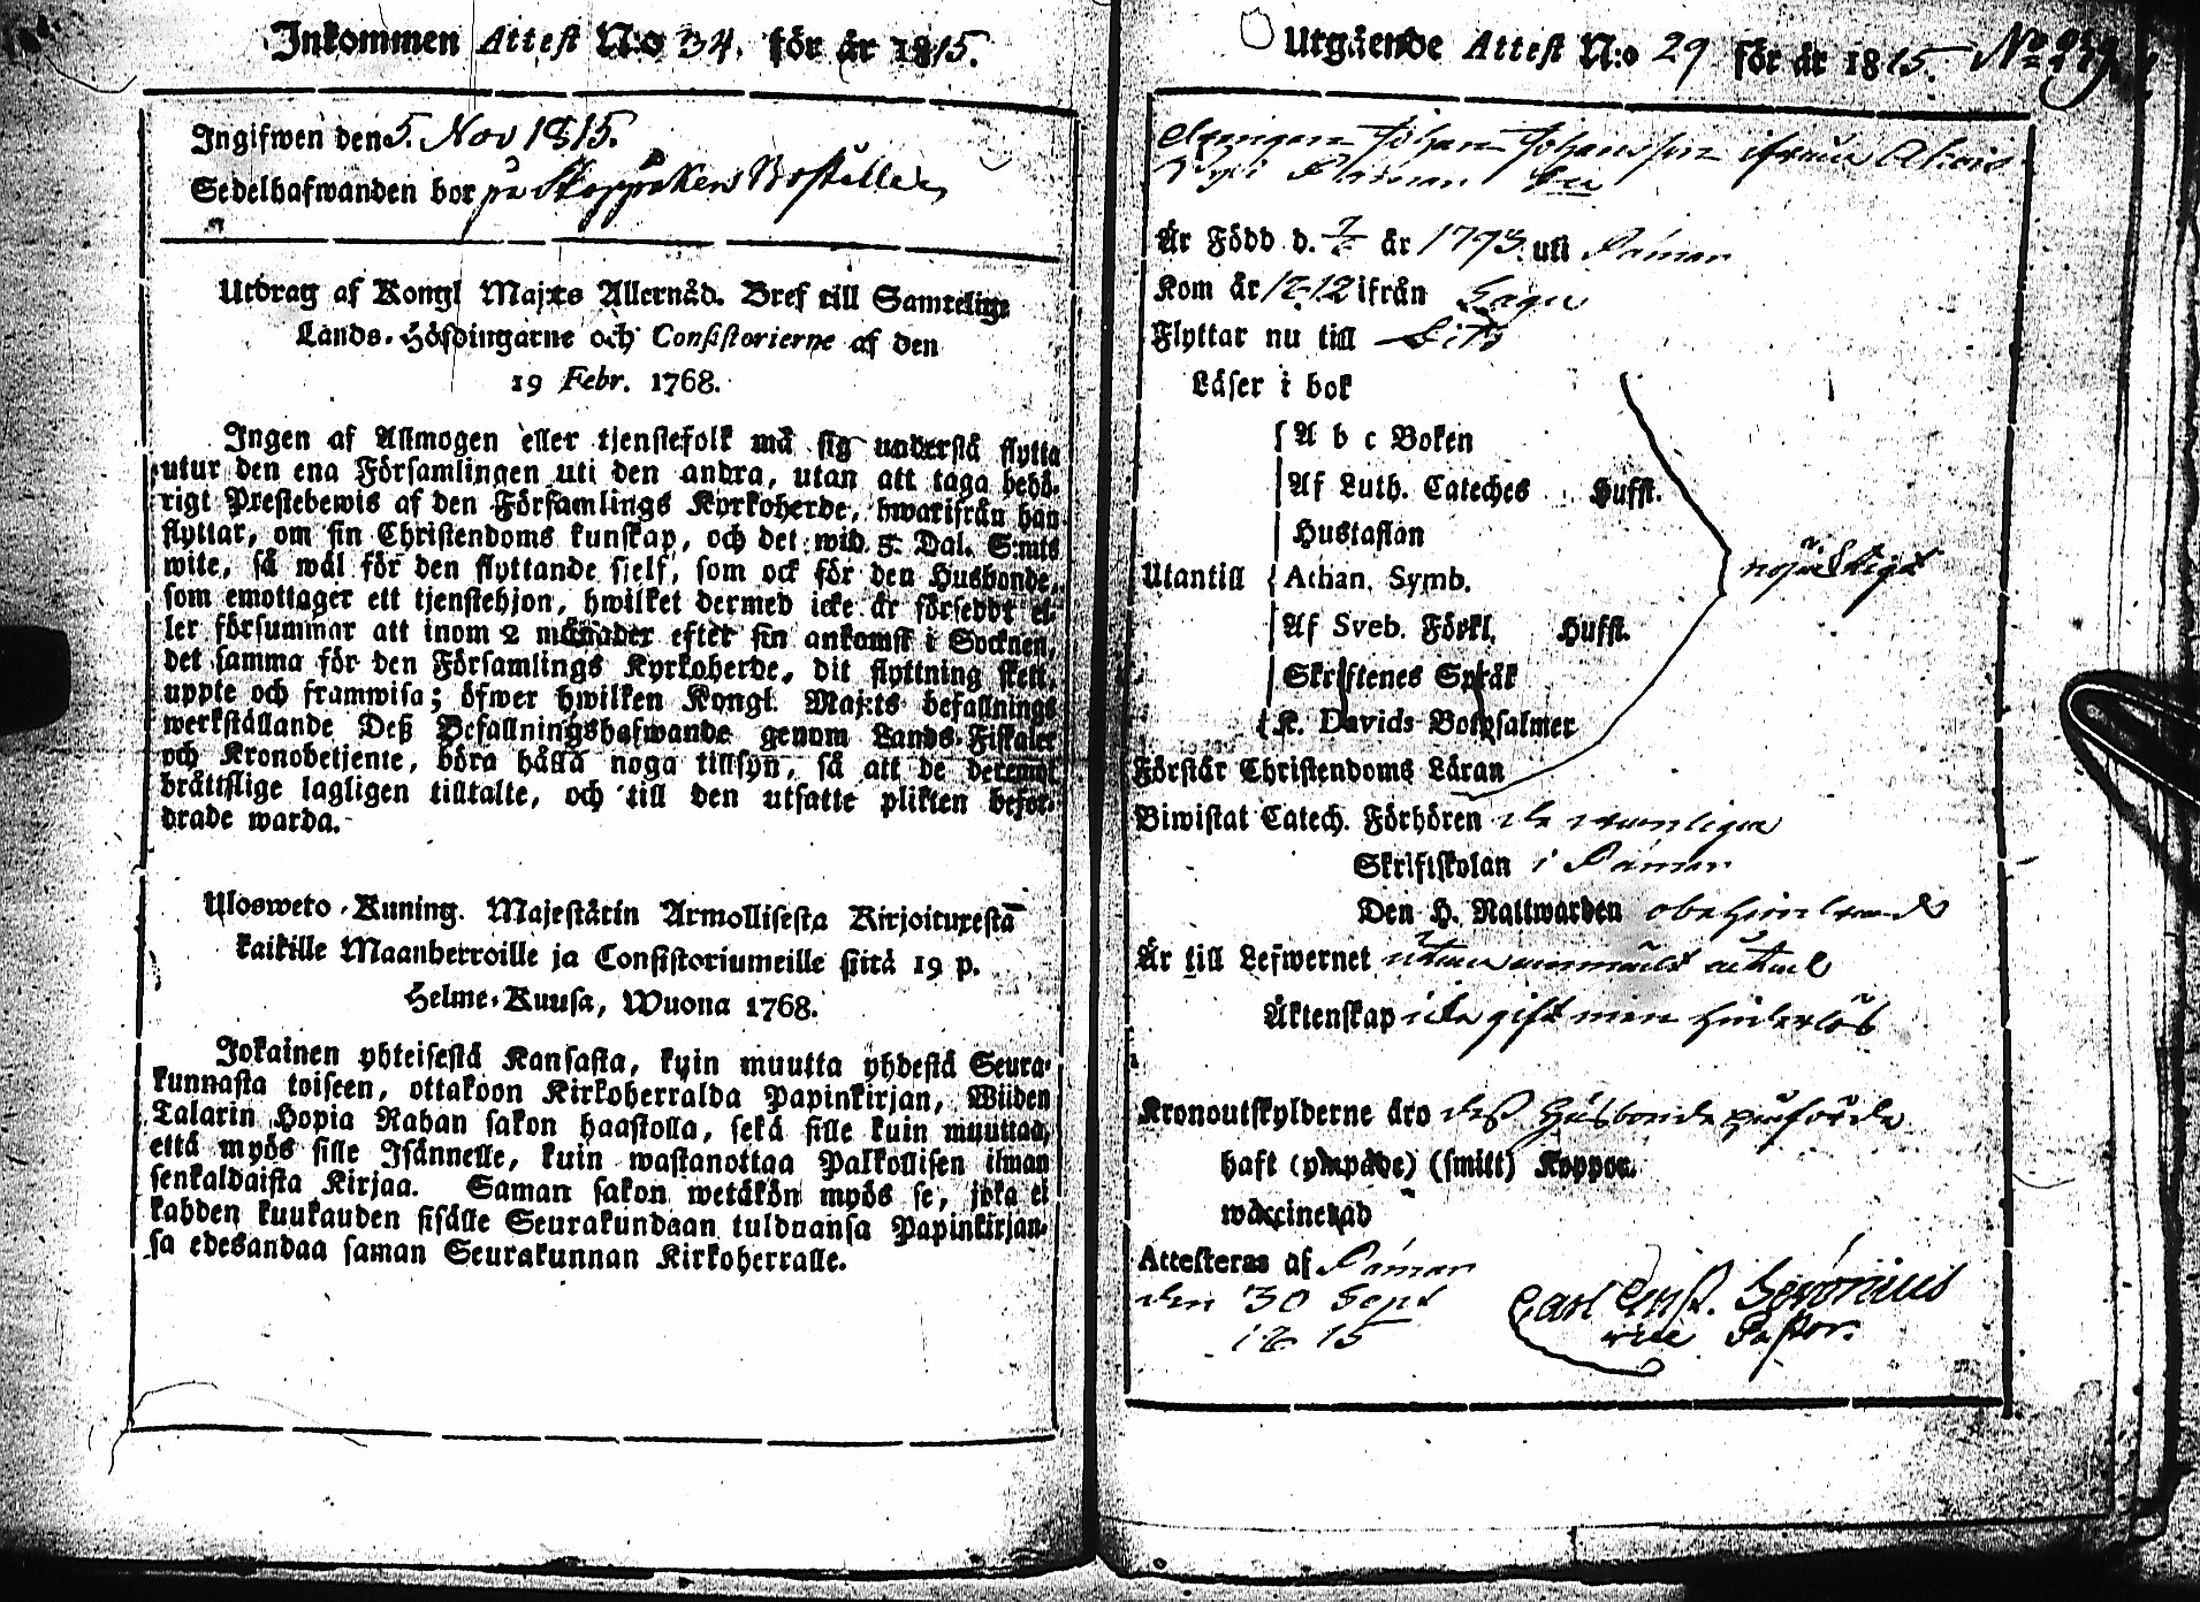 Inkommen Attest N:o 34. för år 1815.
Ingifwen den 5. Nov 1815.
Sedelhafwanden bor på Skoppakers Boställe
Utdrag af Kongl Maj:ts Allernåd. Bref till Samtelige
Lands-Höfdingarne och Consistorierne af den
19 Febr. 1768.
Ingen af Allmogen eller tjenstefolk må sig understå flytta
utur den ena Församlingen uti den andra, utan att taga behö-
rigt Prestebewis af den Församlings Kyrkoherde, hwarifrån han
flyttar, om sin Christendoms kunskap, och det wid 5. Dal. S:mts
wite, så wäl för den flyttande sjelf, som ock för den Husbonde,
som emottager ett tjenstehjon, hwilket dermed icke är försedt el-
ler försummar att inom 2 månader efter sin ankomst i Socknen,
det samma för den Församlings Kyrkoherde, dit flyttning skett,
uppte och framwisa; öfwer hwilken Kongl. Maj:ts befallnings
werkställande Deß Befallningshafwande genom Lands-Fiskaler
och Kronobetjente, böra hålla noga tillsyn, så att de deremot
bråttslige lagligen tilltalte, och till den utsatte plikten befor-
drade warda.
Ulosweto Kuning. Majestätin Armollisesta Kirjoituxesta
kaikille Maanherroille ja Consistoriumeille siitä 19 p.
Helme-Kuusa, Wuona 1768.
Jokainen yhteisestä Kansasta, kuin muutta yhdestä Seura-
kunnasta toiseen, ottakoon Kirkoherralda Papinkirjan, Wiiden
Talarin Hopia Rahan sakon haastolla, sekä sille kuin muuttaa,
että myös sille Isännelle, kuin wastanottaa Palkollisen ilman
senkaldaista Kirjaa. Saman sakon wetäkön myös se, joka ei
kahden kuukauden sisälle Seurakundaan tulduansa Papinkirjan-
sa edesandaa saman Seurakunnan Kirkoherralle.
Utgående Attest N:o 29 för år 1815. No
Drengen Johan Johansson ifrån
Är Född d. år 1793 uti Pämar
Kom år 1812 ifrån Sagu
Flyttar nu till
Läser i bok
A b c Boken
Af Luth. Cateches Hufst.
Hustaflan
Utantill Athan. Symb. nöjaktigt
Af Sveb. Förkl. Hufst.
Skriftenes Språk
K. Davids Botpsalmer
Förstår Christendoms Läran
Biwistat Catech. Förhören de wanliga
Skriftskolan i Pämar
Den H. Nattwarden obehindrad
Är till Lefwernet utan anmärkt
Äktenskap icke gift men hinderlös
Kronoutskylderne äro deß Husbonde påförde
haft (ympade) (smitt) Koppor.
waccinerad
Attesteras af Pämar
den 30 Sept
1815
Carl Ernst.
vice Pastor.